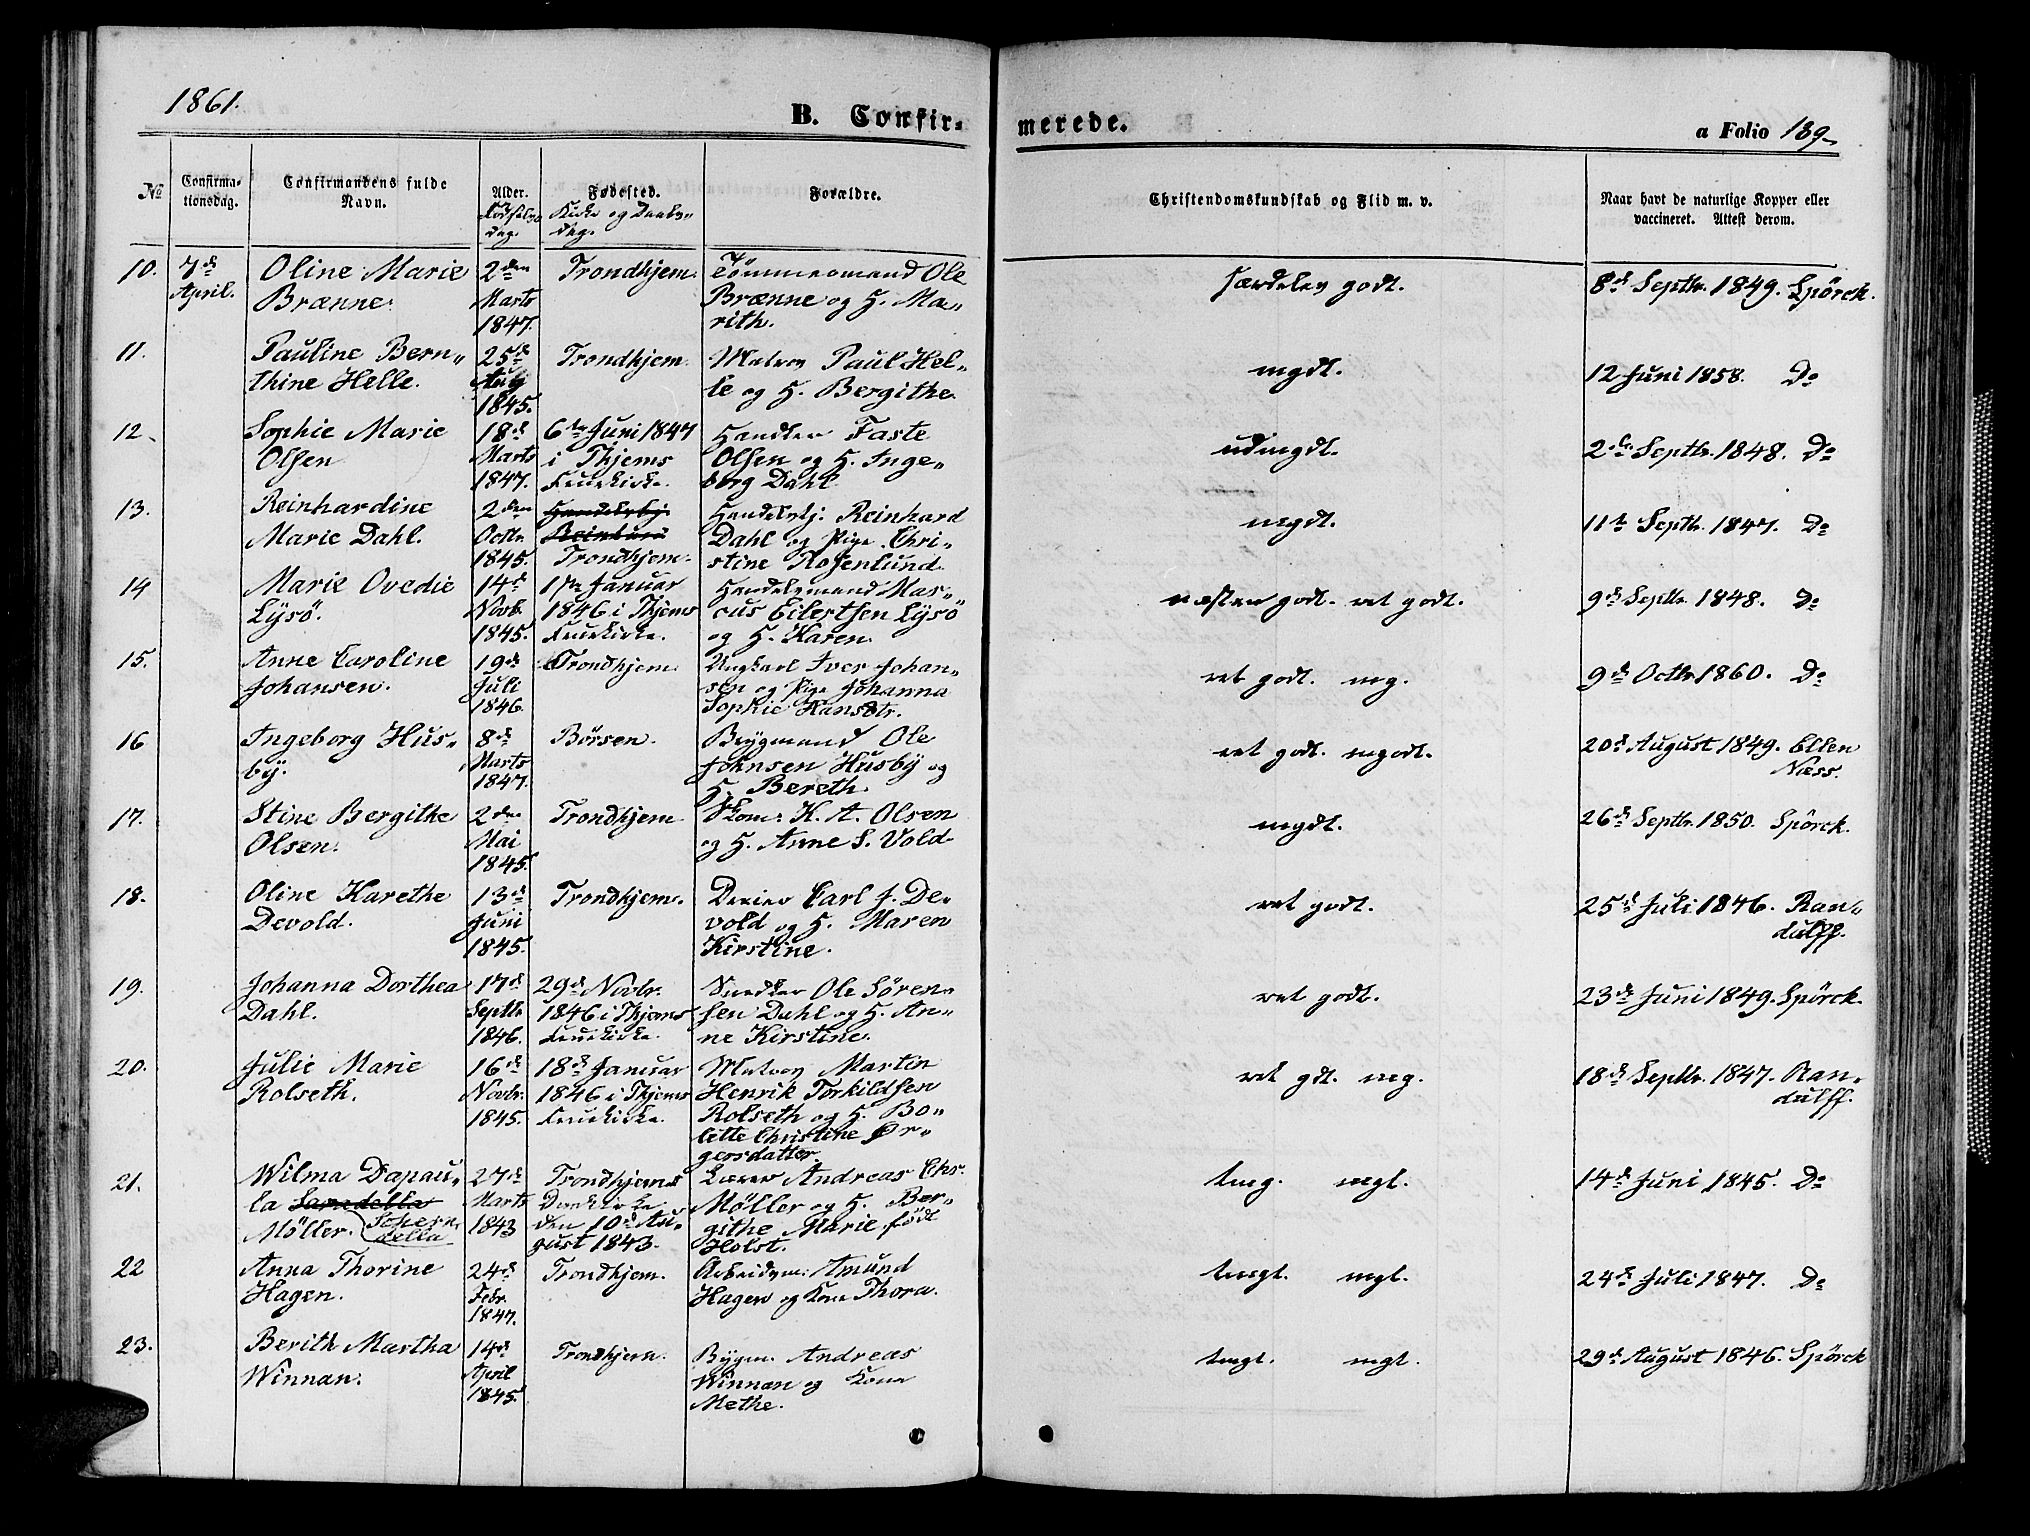 1861.
B. Confir-
merede.
a Folio 139
No
Confirma-
tionsdag.
Confirmandens fulde
Navn.
Alder.
Fødselsdag.
Fødested.
Kirke og Daabs-
dag.
Forældre.
Christendomskundskab og Flid m. v.
Naar havt de naturlige Kopper eller
vaccineret. Attest derom.
10.
7d
April.
Oline Marie
Brænne.
2den
Marts
1847.
Trondhjem.
Tömmermand Ole
Brænne og H. Ma-
rith.
særdeles godt.
8d Septbr. 1849. Spörck.
11.
Pauline Bern-
thine Helle.
25d
Aug
1845.
Trondhjem.
Matros Paul Hel-
le og H. Bergithe.
mgdt.
12 Juni 1858. Do
12.
Sophie Marie
Olsen
18d
Marts
1847.
6te Juni 1847
i Thjems
Fruekirke.
Handler Faste
Olsen og H. Inge-
borg Dahl.
udmgdt.
2de Septbr. 1848. Do
13.
Reinhardine
Marie Dahl.
2den
Octbr.
1845.
Handelsbj.
Reinhard
Trondhjem.
Handelsbj. Reinhard
Dahl og Pige Chri-
stine Rosenlund.
mgdt.
11te Septbr. 1847. Do
14
Marie Ovedie
Lysö.
14d
Novb.
1845.
1ste Januar
1846 i Thjems
Fruekirke.
Handelsmand Mar-
cus Eilertsen Lysö
og H. Karen.
næsten godt. ret godt.
9d Septbr. 1848. Do
15.
Anne Caroline
Johansen.
19d
Juli
1846.
Trondhjem.
Ungkarl Iver Johan-
sen og Pige Johanna
Sophie Hansdtr.
ret godt. mg.
9d Octbr 1860. Do
16
Ingeborg Hus-
by.
8d
Marts
1847.
Börsen.
Brygmand Ole
Johnsen Husby og
H. Bereth.
ret godt. mgodt.
20d August 1849. Ellen
Næss.
17.
Stine Bergithe
Olsen.
2den
Mai
1845.
Trondhjem
Skom. H. A. Olsen
og H. Anne S. Vold.
mgdt.
26d Septbr. 1850. Spörck.
18.
Oline Karethe
Devold.
13d
Juni
1845.
Trondhjem.
Carl J. De-
vold og H. Maren
Kirstine.
ret godt.
25d Juli 1846. Ran-
dulff.
19.
Johanna Dorthea
Dahl.
17d
Septbr.
1846.
29d Novbr.
1846 i Thjems
Fruekirke.
Snedker Ole Sören-
sen Dahl og H. An-
ne Kirstine.
ret godt.
23d Juni 1849. Spörck.
20.
Julie Marie
Rolseth.
16d
Novbr.
1845.
18d Januar
1846 i Thjems
Fruekirke.
Matros Martin
Henrik Torkildsen
Rolseth og H. Bo-
lette Christine Ør-
gersdatter.
ret gdt. mg.
18d Septbr. 1847. Ran-
dulff.
21.
Wilma Dapau-
la
Möller. Schern
della
27d
Marts
1843
Trondhjems
Domkirke
den 10d Au-
gust 1843.
Lærer Andreas Chr.
Möller og H. Ber-
githe Marie født
Holst.
tmg. mgt.
14d Juni 1845. Do
22
Anna Thorine
Hagen.
24d
Febr.
1847.
Trondhjem.
Arbeidsm. Amund
Hagen og Kone Thora.
tmgt. mgt.
24d Juli 1847. Do
23.
Berith Martha
Winnan.
14d
April
1845.
Trondhjem.
Bygm. Andreas
Winnan og Kone
Methe.
tmgt. mgt.
29d August 1846. Spörck